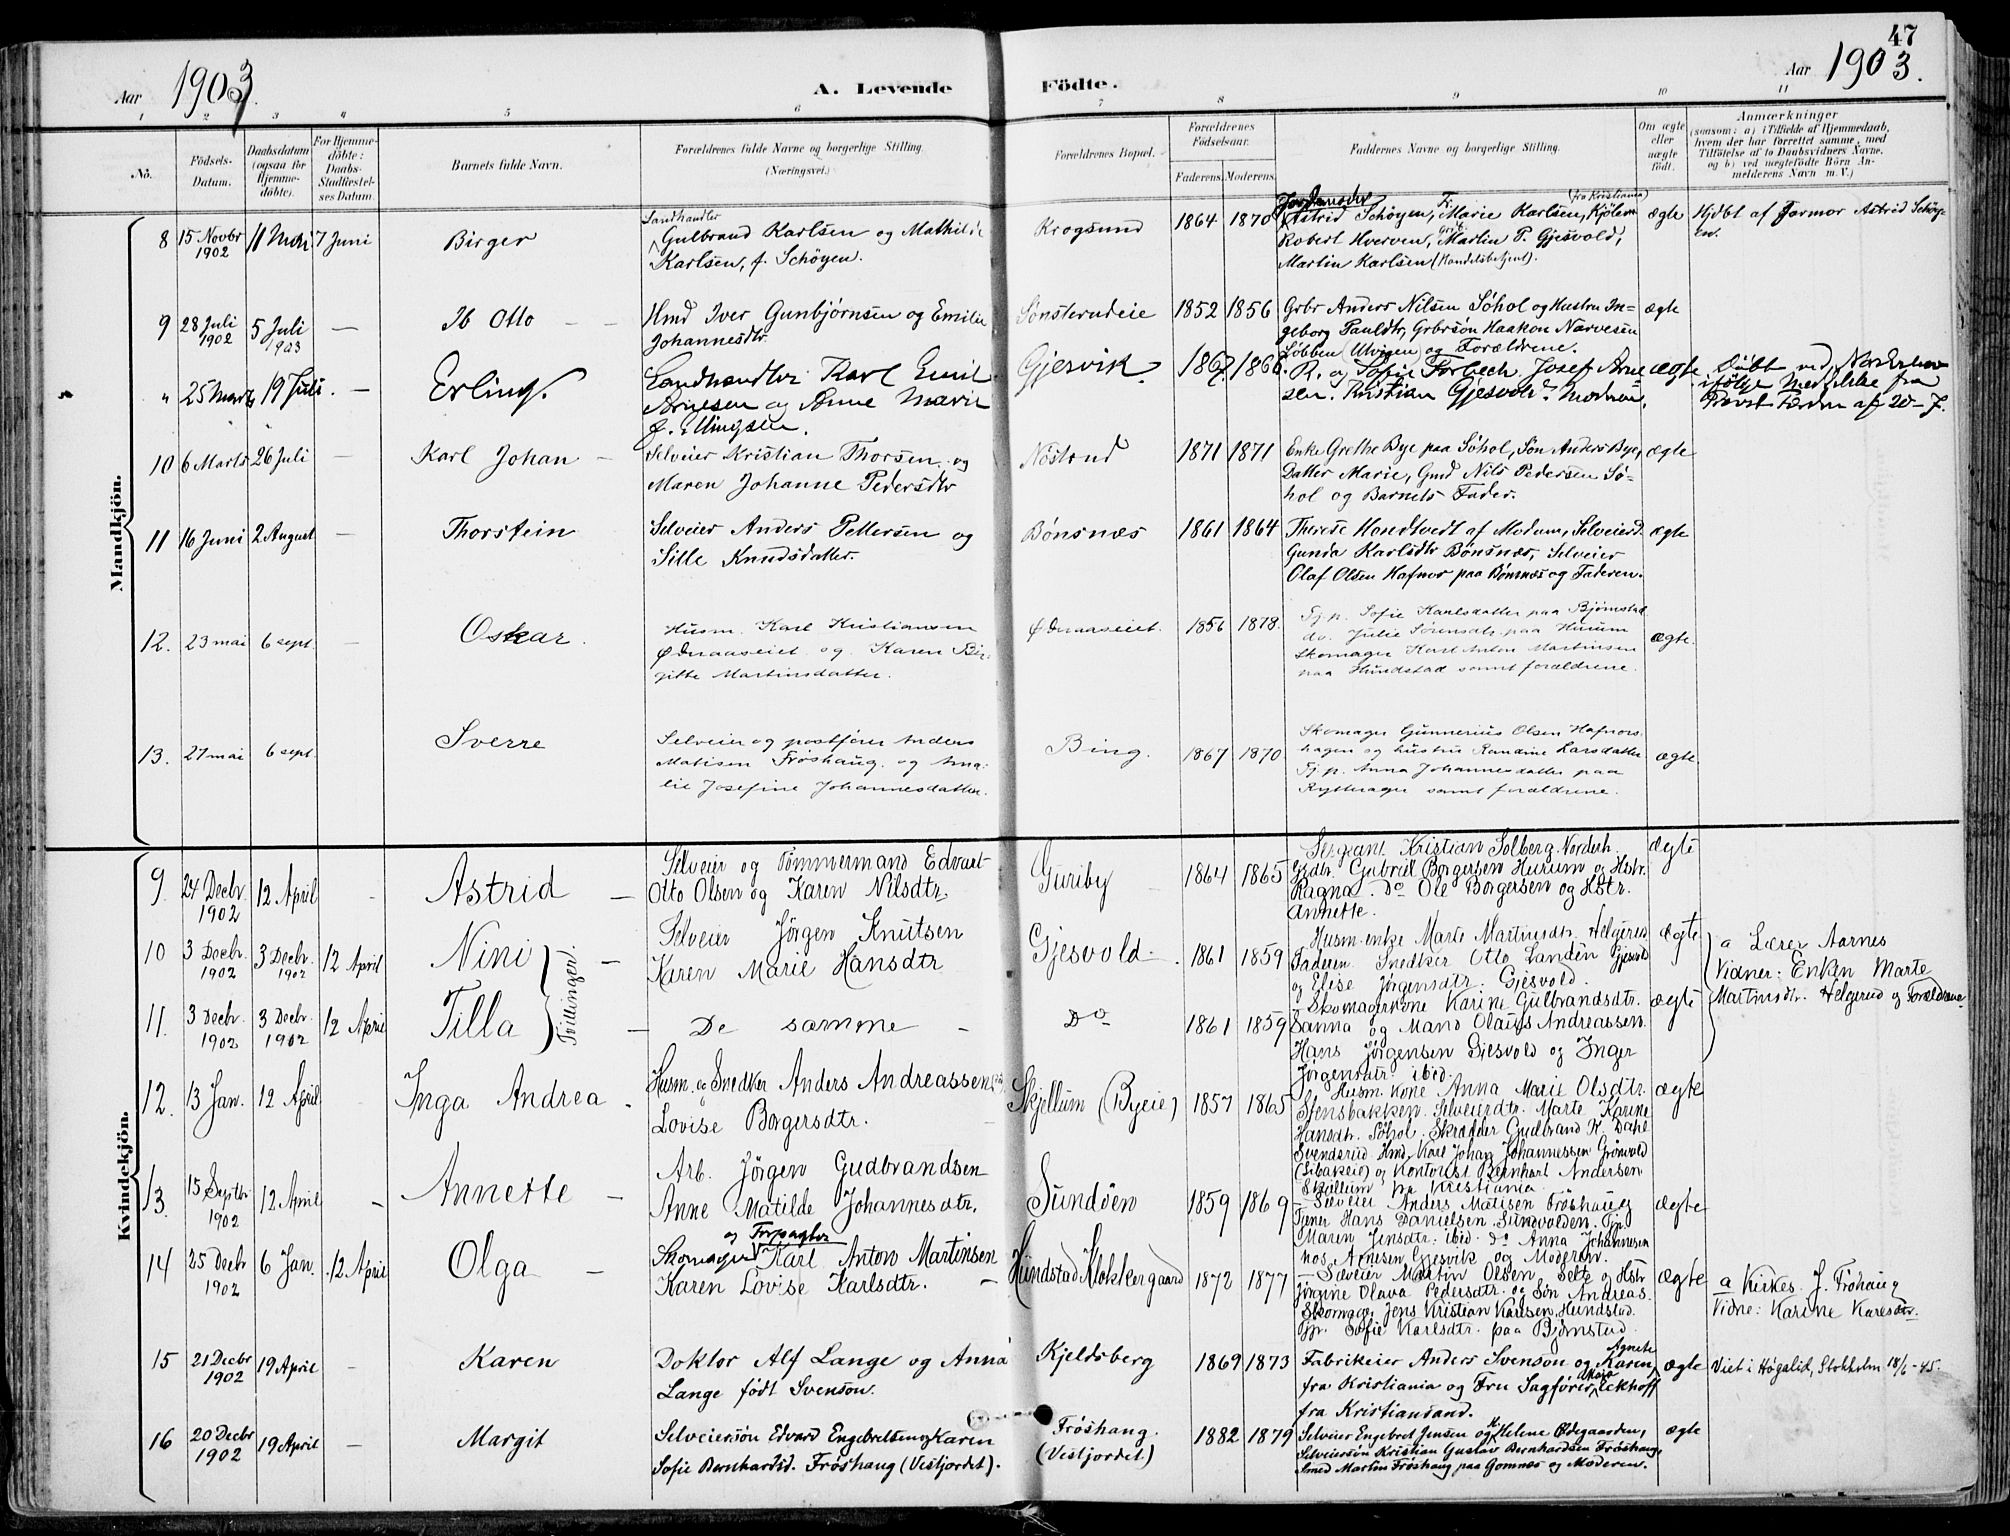 47
Aar 1903.
A. Levende Födte.
Aar 1903.
1 2 3 4 5 6 7 8 9 10 11
No.
Födsels-Datum.
Daabsdatum (ogsaa for Hjemmedöbte).
For Hjemmedöbte: Daabs-Stadfæstelses Datum.
Barnets fulde Navn.
Forældrenes fulde Navne og borgerlige Stilling. (Næringsvei.)
Forældrenes Bopæl.
Forældrenes Födselsaar. Faderens. Moderens.
Faddernes Navne og borgerlige Stilling.
Om ægte eller uægte födt.
Anmærkninger (saasom: a) i Tilfælde af Hjemmedaab, hvem der har forrettet samme, med Tilföielse af to Daabsvidners Navne, og b) ved uægtefödte Börn Anmelderens Navn m. V.)
Mandkjön.
8 15 Novbr 1902 11 Mai 7 Juni Birger
Landhandler
Gulbrand Karlsen og Mathilde
Karlsen, f. Schöyen.
Krogsund 1864 1870
Jordemoder Fr. (fra Kristiania)
Astrid Schöyen, Marie Karlsen, Kjölem
Robert Hverven, Grbr. Martin P. Gjesvold,
Martin Karlsen (Handelsbetjent).
ægte
Hjdbt af Farmor Astrid Schöyen.
9 28 Juli 1902 5 Juli 1903 — Ib Otto
Hmd Iver Gunbjørnsen og Emilie
Johannesdtr
Sønsterudeie 1852 1856
Grbr Anders Nilsen Søhol og Hustru In-
geborg Pauldtr, Grbrsøn Haakon Narvesen
Løbben (Utvigen) og Forældrene.
ægte
" 25 Marts 19 Juli. — Erling.
Landhandler Karl Emil
Arnesen og Anne Marie
f. Ellingsen.
Gjesvik. 1867. 1866
R. og Sofie Forbech. Josef Arne-
sen. Kristian Gjesvold & Moderen.
ægte
Döbt ved Norderhov
ifölge Meddelelse fra
Provst Færden af 20-7.
10 6 Marts 26 Juli — Karl Johan —
Selveier Kristian Thorsen og
Maren Johanne Pedersdtr
Nöstrud 1871 1871
Enke Grethe Bye paa Søhol, Søn Anders Bye,
Datter Marie, Gmd Nils Pedersen Sø-
hol og Barnets Fader.
ægte
11 16 Juni 2 August — Thorstein
Selveier Anders Pettersen og
Sille Knudsdatter.
Bönsnæs 1861 1864
Therese Hondtvedt af Modum, Selveierd.
Gunda Karlsdtr Bönsnæs, Selveier
Olaf Olsen Hafnor paa Bönsnæs og Faderen.
ægte
12. 23 mai 6 sept. — Oskar.
Husm. Karl Kristiansen
Ødnaaseiet og Karen Bir-
gitte Martinsdatter.
Ødnaaseiet. 1856 1878.
Tj.p. Sofie Karlsdatter paa Bjørnstad
do. Julie Sørensdtr. paa Hurum
Skomager Karl Anton Martinsen
paa Hundstad samt forældrene.
ægte.
13. 27 mai 6 sept. Sverre
Selveier og postfører Anders
Matisen Frøshaug og Ama-
lie Josefine Johannesdatter.
Bing. 1867 1870
Skomager Gunnerius Olsen Hafnors-
hagen og hustru Randine Larsdatter
Tj.p. Anna Johannesdatter paa
Rytterager samt forældrene.
ægte.
Kvindekjön.
9. 24 Decbr 1902 12 April Astrid —
Selveier og Tømmermand Edvart
Otto Olsen og Karen Nilsdtr.
Guriby 1864 1865
Sergeant Kristian Solberg, Norderh.
Gjdtr. Gubriel Borgersen Hurum og Hstr.
Ragna. Do Ole Borgersen og Hstr.
Annette.
ægte
10 3 Decbr. 1902 3 Decbr. 1902 12 April Nini —
Selveier Jörgen Knutsen
Karen Marie Hansdtr.
Gjesvold. 1861 1859
Husm. enke Marte Martinsdtr. Helgerud
Faderen. Snedker Otto Landén Gjesvold
og Elise Jörgensdtr. Gjesvold.
ægte
a Lærer Aarnes
Vidner: Enken Marte
Martinsdtr. Helgerud og Forældrene
Tvillinger.
11. 3 Decbr. 1902 3 Decbr. 1902 12 April Tilla —
De samme —
Do 1861 1859
Skomagerkone Karine Gulbrandsdtr.
Sanna og Mand Olaus Andreassen.
Hans Jörgensen Gjesvold og Inger
Jörgensdtr. ibid.
ægte
12. 13 Jan. 12 April Inga Andrea.
Husm. og Snedker Anders Andreassen
Lovise Borgersdtr.
Skjellum (Byeie) 1857 1865
Husm. kone Anna Marie Olsdtr.
Stensbakken. Selveierdtr. Marte Karine
Hansdtr. Søhol. Skrædder Gudbrand K. Dahl
Svenderud. Hmd. Karl Johan Johannessen Grönvold
og Kontorist Bernhart Andersen
Skjellum fra Kristiania.
ægte
13. 15 Septbr 1902 12 April Annette —
Arb. Jörgen Gudbrandsen
Anne Matilde Johannesdtr.
Sundöen 1859 1869
Selveier Anders Matisen Frøshaug
Tjener Hans Danielsen Sundvolden. Tjp.
Maren Jensdtr. ibid. Do Anna Johannesen
Arnesen Gjesvik og Moderen.
ægte
14 25 Decbr 1902 6 Jan. 12 April Olga —
og Forpagter
Skomager Karl Anton Martinsen
Karen Lovise Karlsdtr. —
Hundstad Klokkergaard 1872 1877
Selveier Martin Olsen Selte og Hstr
Jörgine Olava Pedersdtr. og Søn Andreas.
Skomager Jens Kristian Karlsen, Hundstad.
Tjp. Sofie Karlsdtr. paa Bjørnstad.
ægte
a Kirkes. J. Fröhaug
Vidne: Karine Karlsdtr.
15 21 Decbr 1902 19 April — Karen
Doktor Alf Lange og Anna
Lange født Svenson.
Kjeldsberg 1869 1873
Agnete
Fabrikeier Anders Svenson og Karen,
fra Kristiania og Fru Sagfører Maja Eckhoff
fra Kristiansand.
ægte
Viet i Høgalid, Stockholm 18/6-45.
16 20 Decbr 1902 19 April — Margit
Selveiersøn Edvard Engebretsen og Karen
Sofie Bernhardsd. Frøshaug (Vestjordet).
Frøshaug. (Vestjordet) 1882 1879
Selveier Engebret Jensen og H. Helene Ødegaarden,
Selveiersøn Kristian Gustav Bernhardsen Frøshaug,
Smed Martin Frøshaug paa Gomnæs og Moderen.
ægte